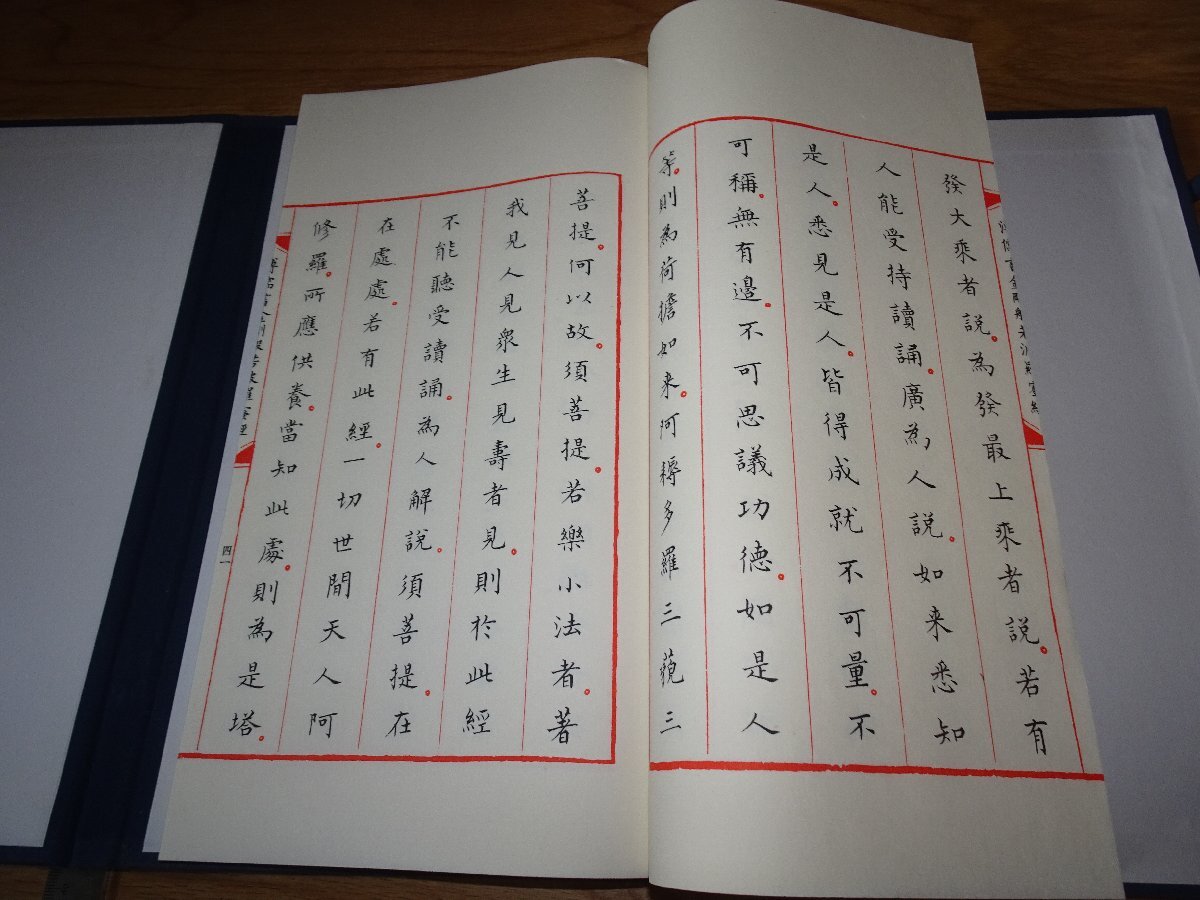 發大乘者說。為發最上乘者說。若有
人能受持讀誦。廣為人說。如来悉知
是人。悉見是人。皆得成就不可量。不
可稱。無有邊。不可思議功德。如是人
等。則為荷擔如来。阿耨多羅三藐三
菩提。何以故。須菩提。若樂小法者。著
我見人見眾生見壽者見。則於此經
不能聽受讀誦。為人解說。須菩提。在
在處處。若有此經。一切世間天人阿
修羅。所應供養。當知此處。則為是塔。
金剛般若波羅蜜經
四一